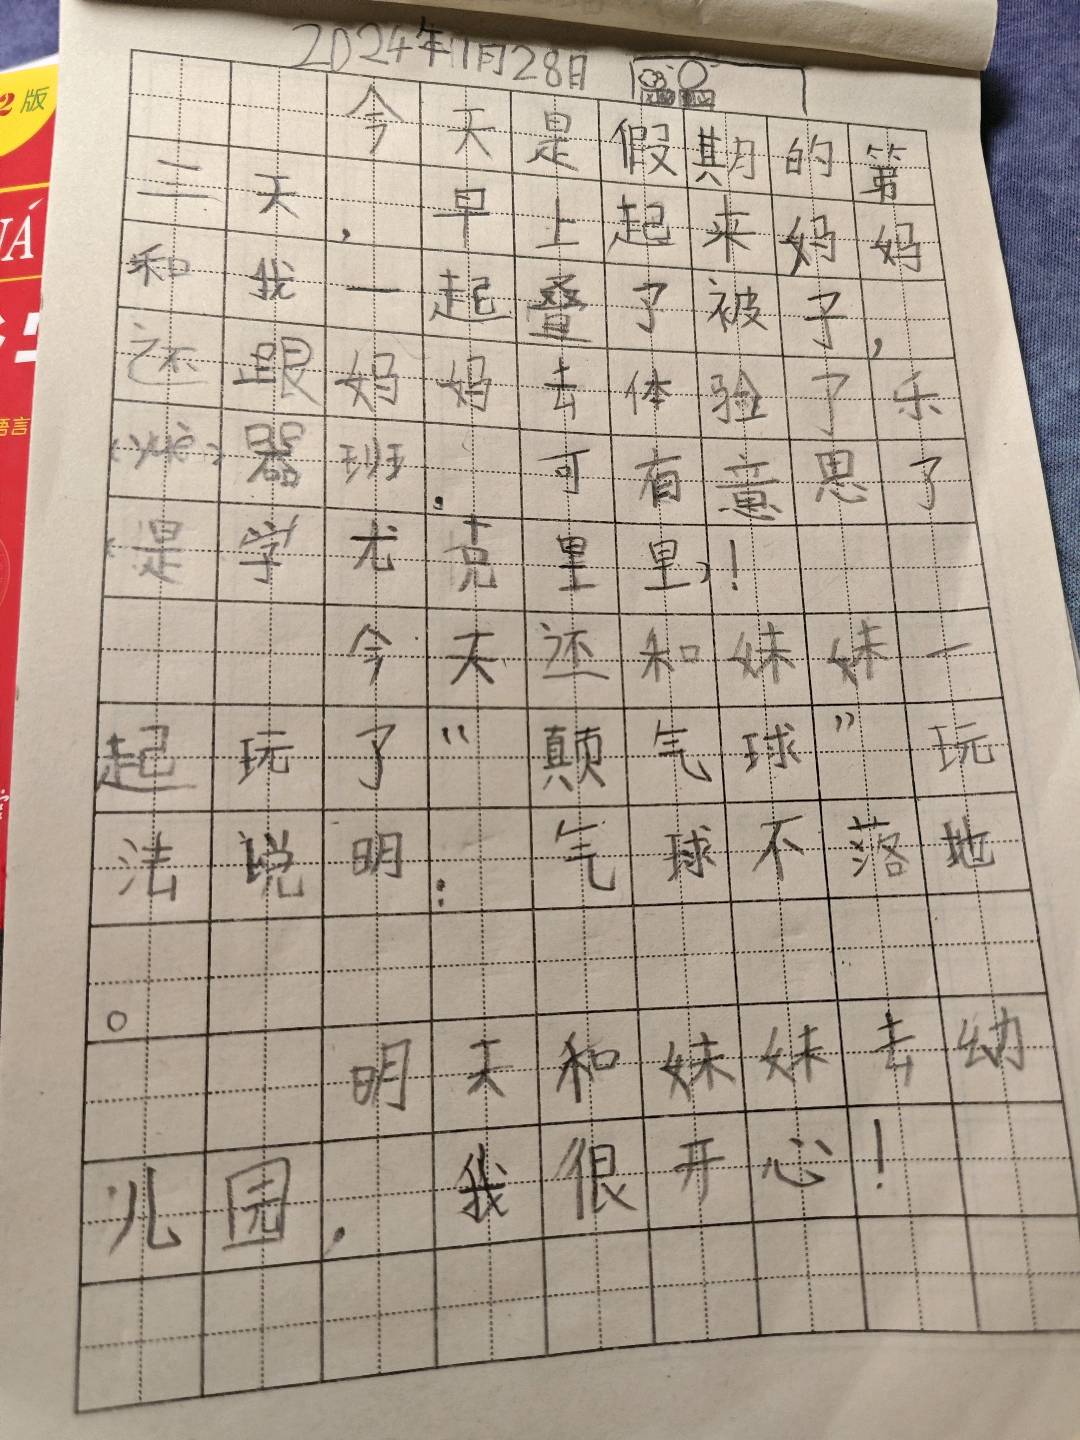 2024年11月28日
今天是假期的第
三天，早上起来妈妈
和我一起叠了被子，
还跟妈妈去体验了乐
器班。可有意思了
是学尤克里里，！
今天还和妹妹一
起玩了“颠气球”玩
法说明：气球不落地
。
明天和妹妹去幼
儿园，我很开心！
2版
语言